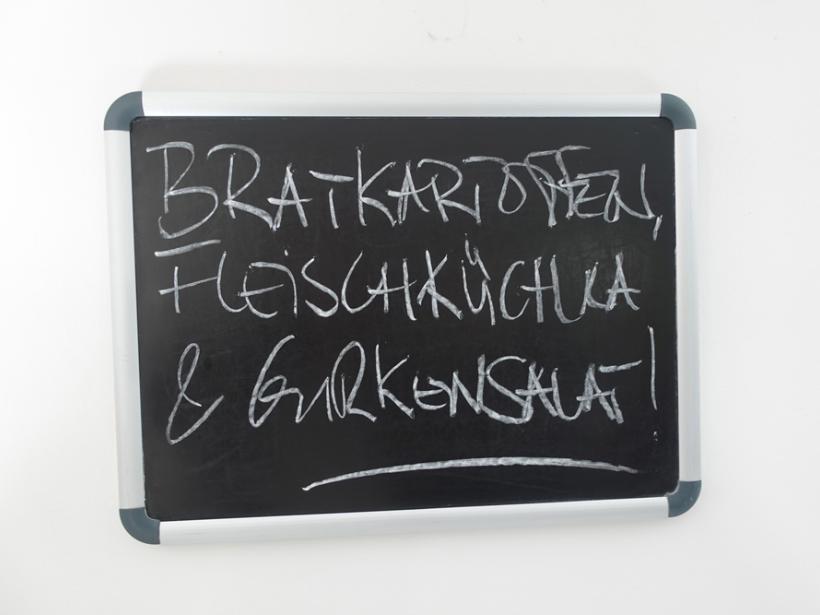 BRATKARTOFFEN,
FLEISCHKÜCHLA
& GURKENSALAT!